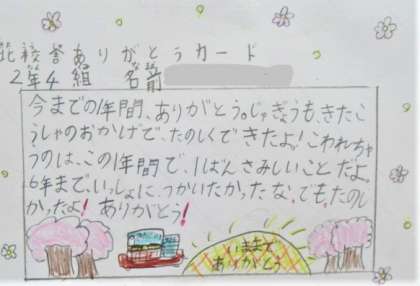 北校舎ありがとうカード
2年4組 名前
今までの1年間、ありがとう。じゅぎょうも、きたこ
うしゃのおかげで、たのしくできたよ!こわれちゃ
うのは、この1年間で、1ばんさみしいことだよ。
6年まで、いっしょに、つかいたかったな。でも、たのし
かったよ!ありがとう!
いままで
ありがとう